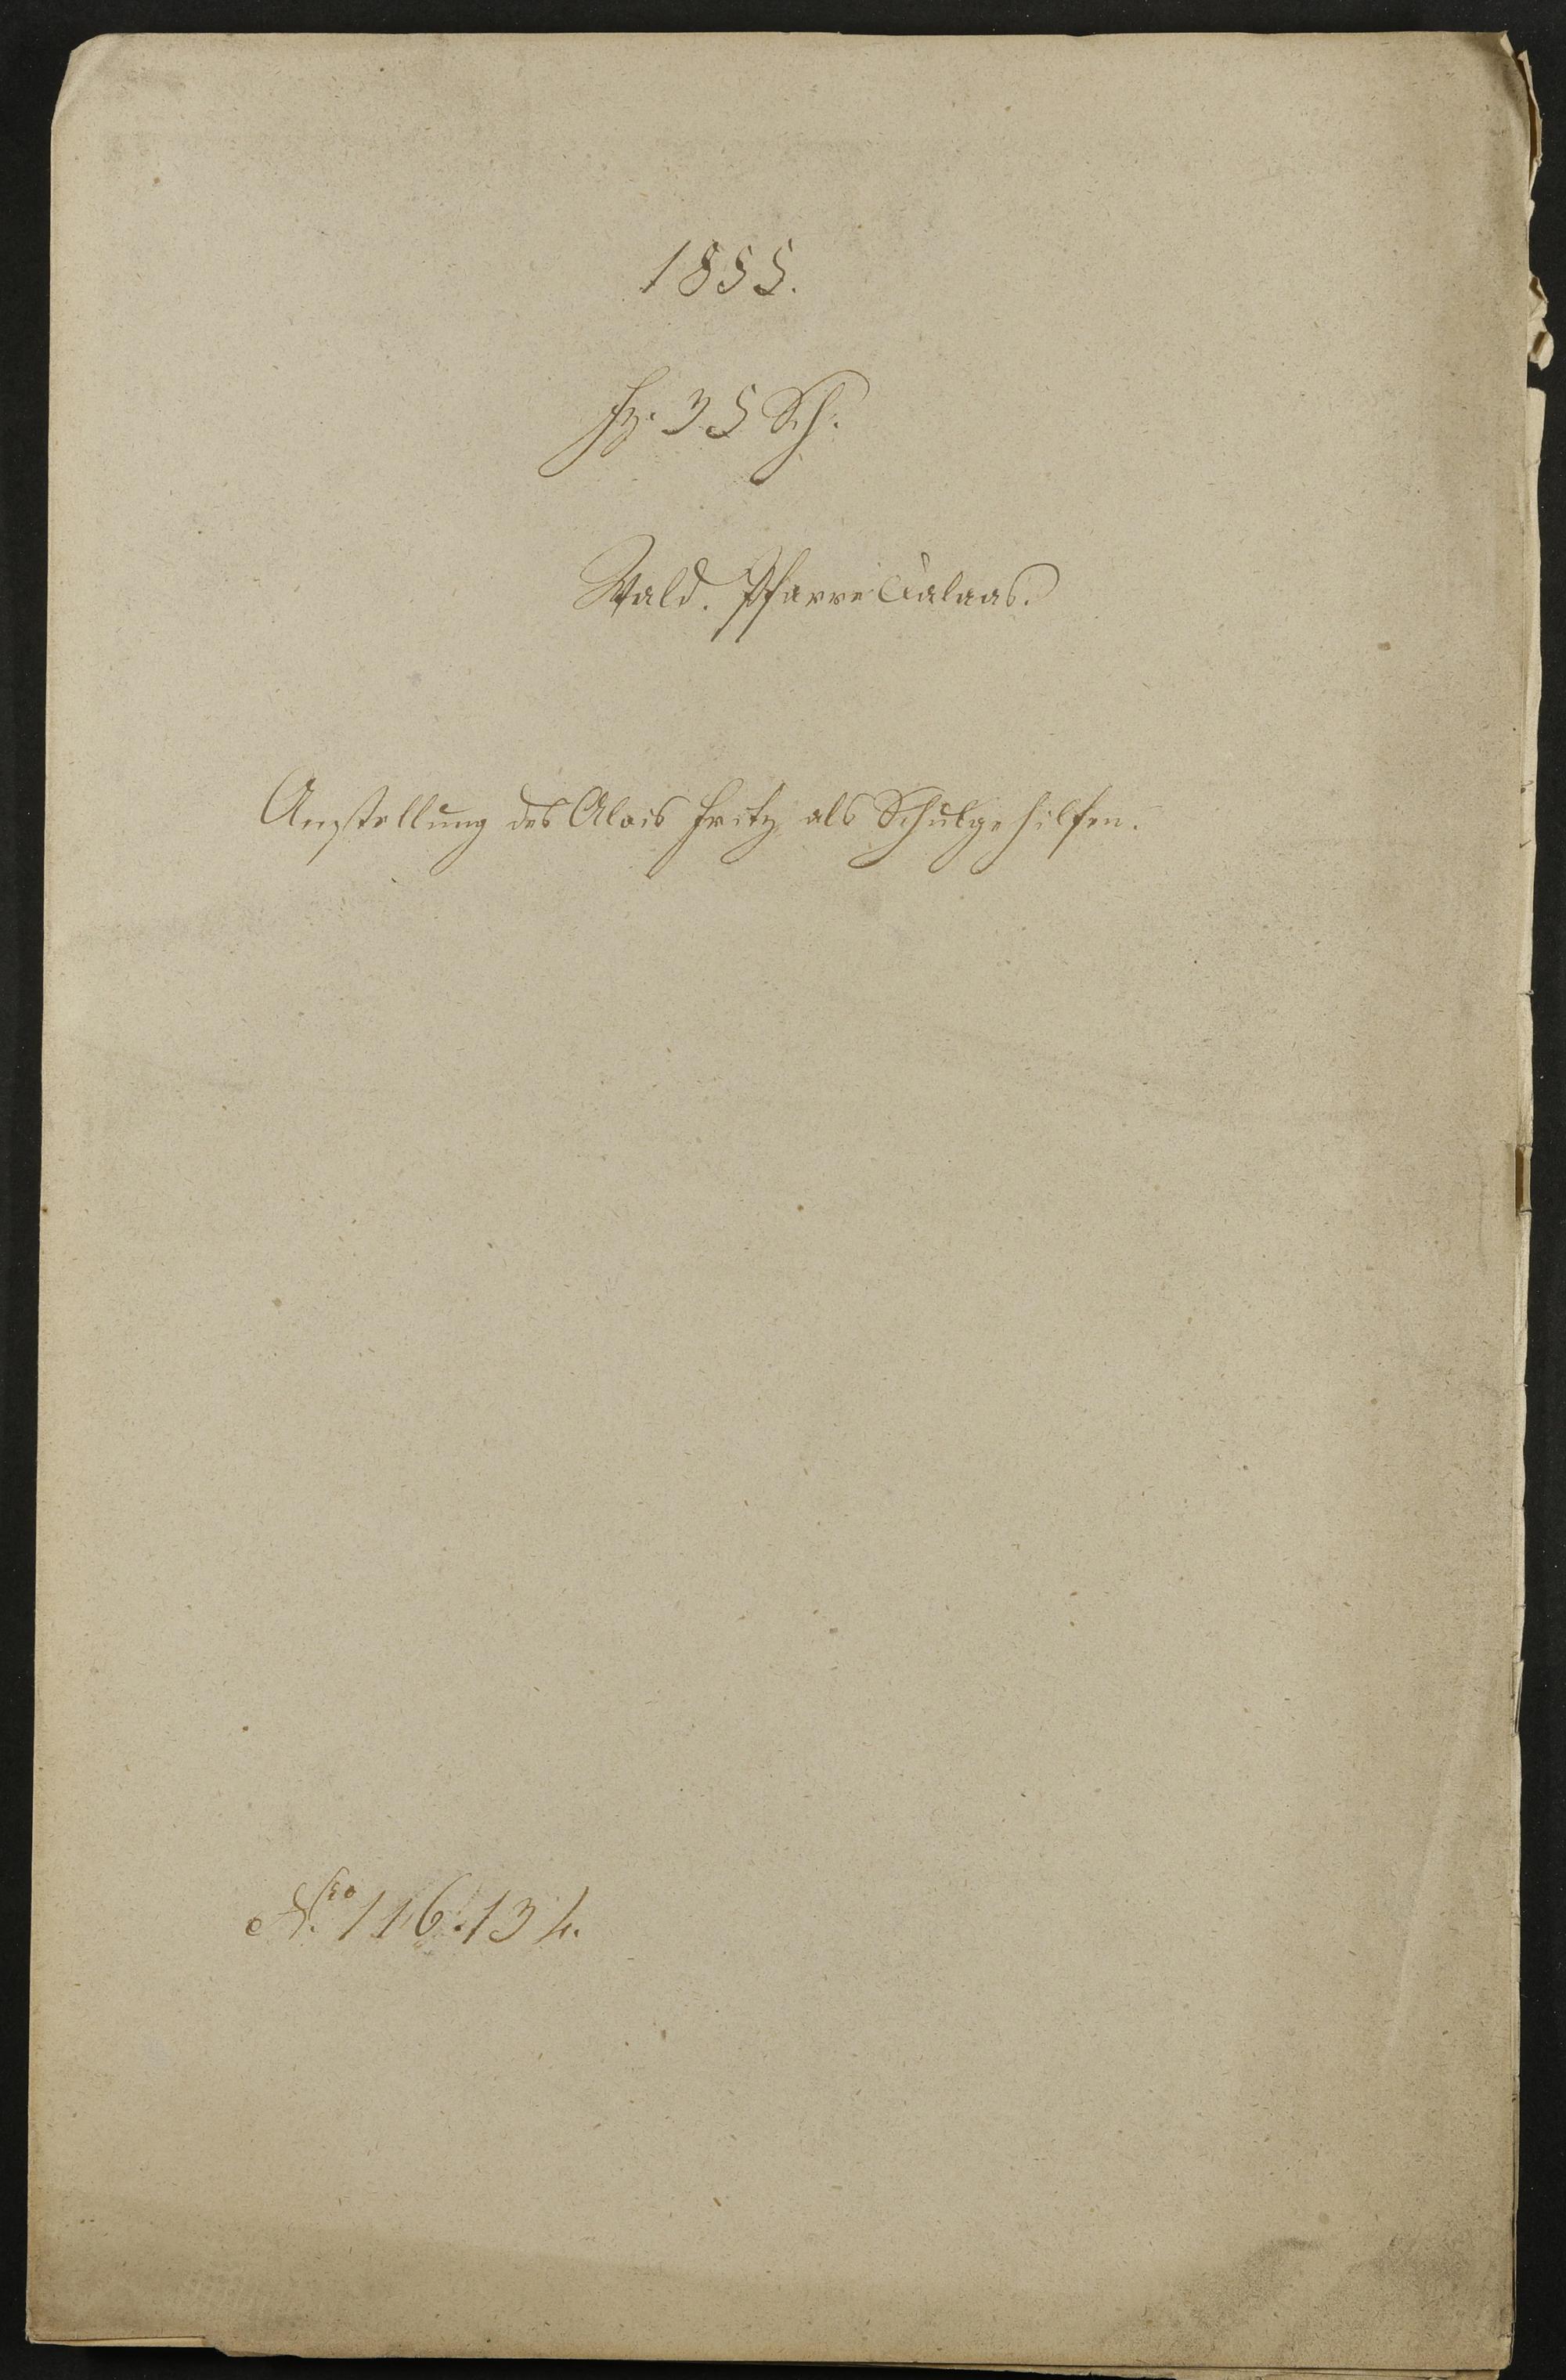 1855.
Fz. 35 Sch.
Wald. Pfarre Dalaas.
Anstellung des Alois Fritz als Schulgehilfen.
Nro 116.134.